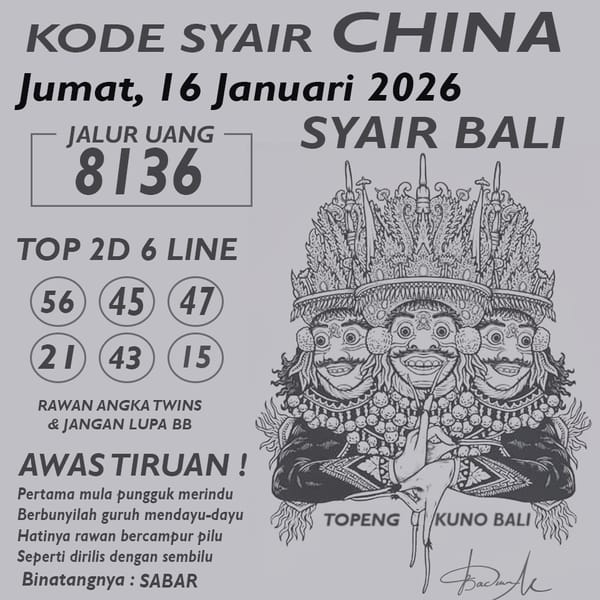 KODE SYAIR CHINA
Jumat, 16 Januari 2026
SYAIR BALI
JALUR UANG
8136
TOP 2D 6 LINE
56 45 47
21 43 15
RAWAN ANGKA TWINS
& JANGAN LUPA BB
AWAS TIRUAN !
Pertama mula pungguk merindu
Berbunyilah guruh mendayu-dayu
Hatinya rawan bercampur pilu
Seperti dirilis dengan sembilu
Binatangnya : SABAR
TOPENG KUNO BALI